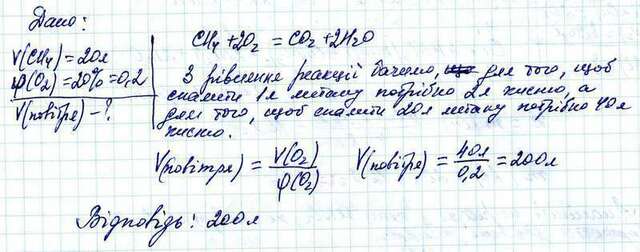 Дано:
V(CH4)=20л
φ(O2)=20%=0,2
V(повітря)-?
CH4+2O2=CO2+2H2O
З рівняння реакції бачимо, для того, щоб
спалити 1л метану потрібно 2л кисню, а
для того, щоб спалити 20л метану потрібно 40л
кисню.
V(повітря)=V(O2)/φ(O2) V(повітря)=40л/0,2=200л
Відповідь: 200л